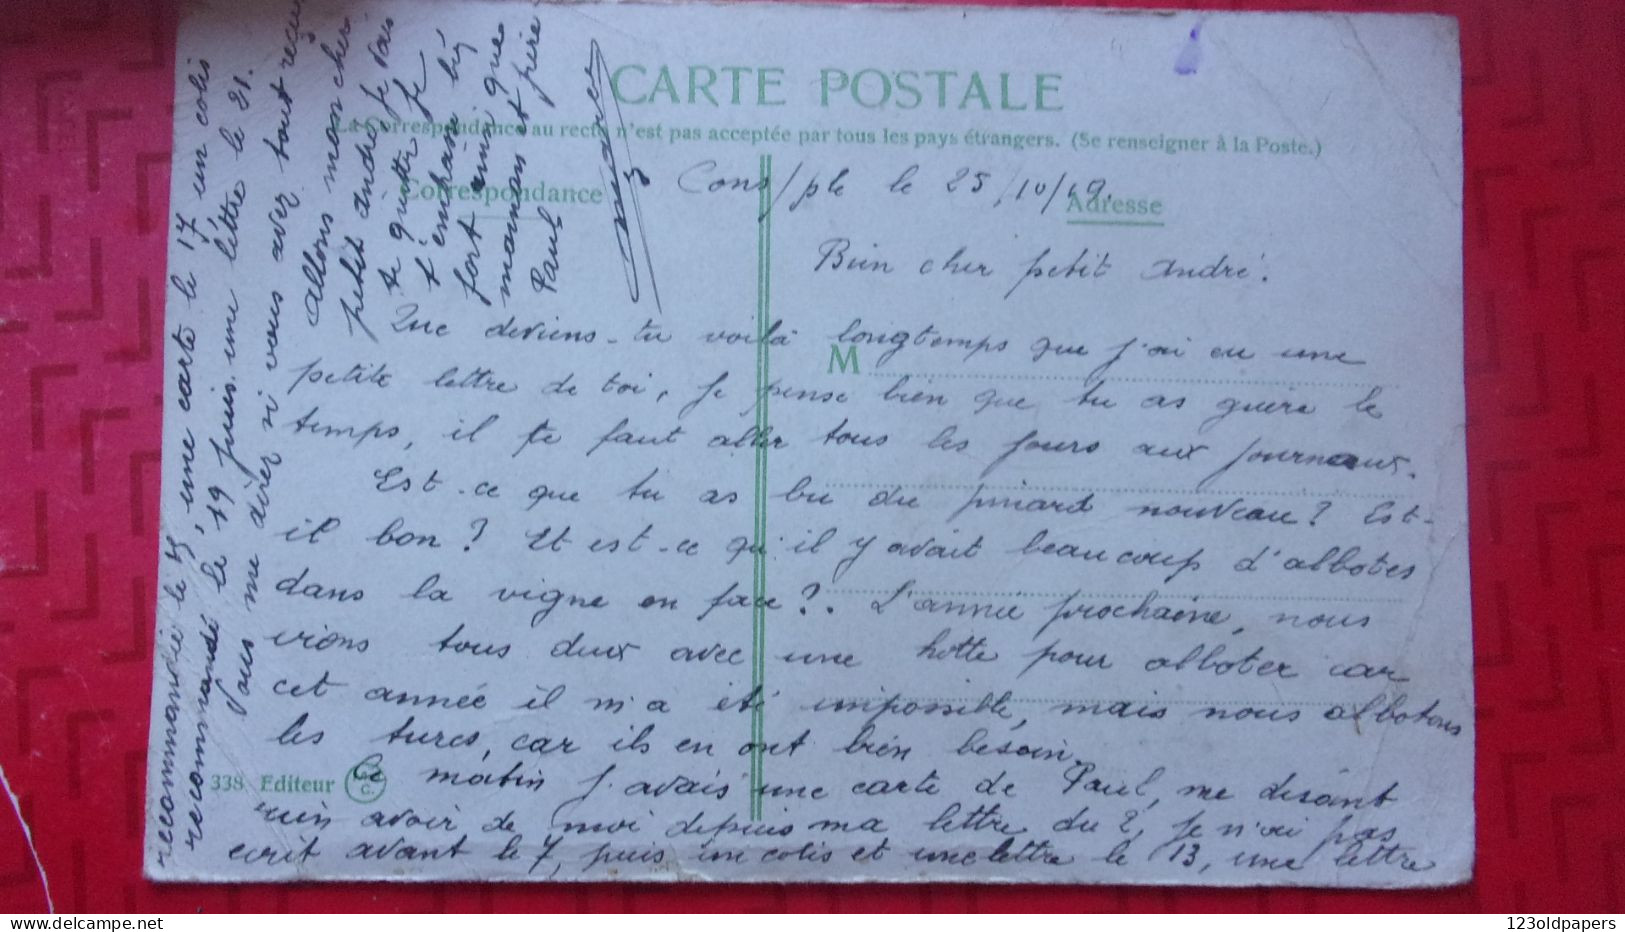 CARTE POSTALE
La Correspondance au recto n'est pas acceptée par tous les pays étrangers. (Se renseigner à la Poste.)
Correspondance
Adresse
Cons/ple le 25/10/19.
Bien cher petit André.
Que deviens-tu voilà longtemps que j'ai eu une
petite lettre de toi, je pense bien que tu as guère le
temps, il te faut aller tous les jours aux journaux.
Est-ce que tu as bu du pinard nouveau? Est-
il bon? Et est-ce qu'il y avait beaucoup d'albotes
dans la vigne en face?. L'année prochaine, nous
irons tous deux avec une hotte pour alboter car
cet année il m'a été impossible, mais nous albotons
les turcs, car ils en ont bien besoin.
Ce matin j'avais une carte de Paul, me disant
rien avoir de moi depuis ma lettre du 2, je n'ai pas
ecrit avant le 7, puis un colis et une lettre le 13, une lettre
recommandée le 15, une carte le 17 un colis
recommandé le 19 puis une lettre le 21.
Vous me direz si vous avez tout reçu
allons mon cher
petit André je vais
te quitter je
t'embrasse bien
fort ainsi que
maman et père
Paul
M
338 Editeur
123oldpapers